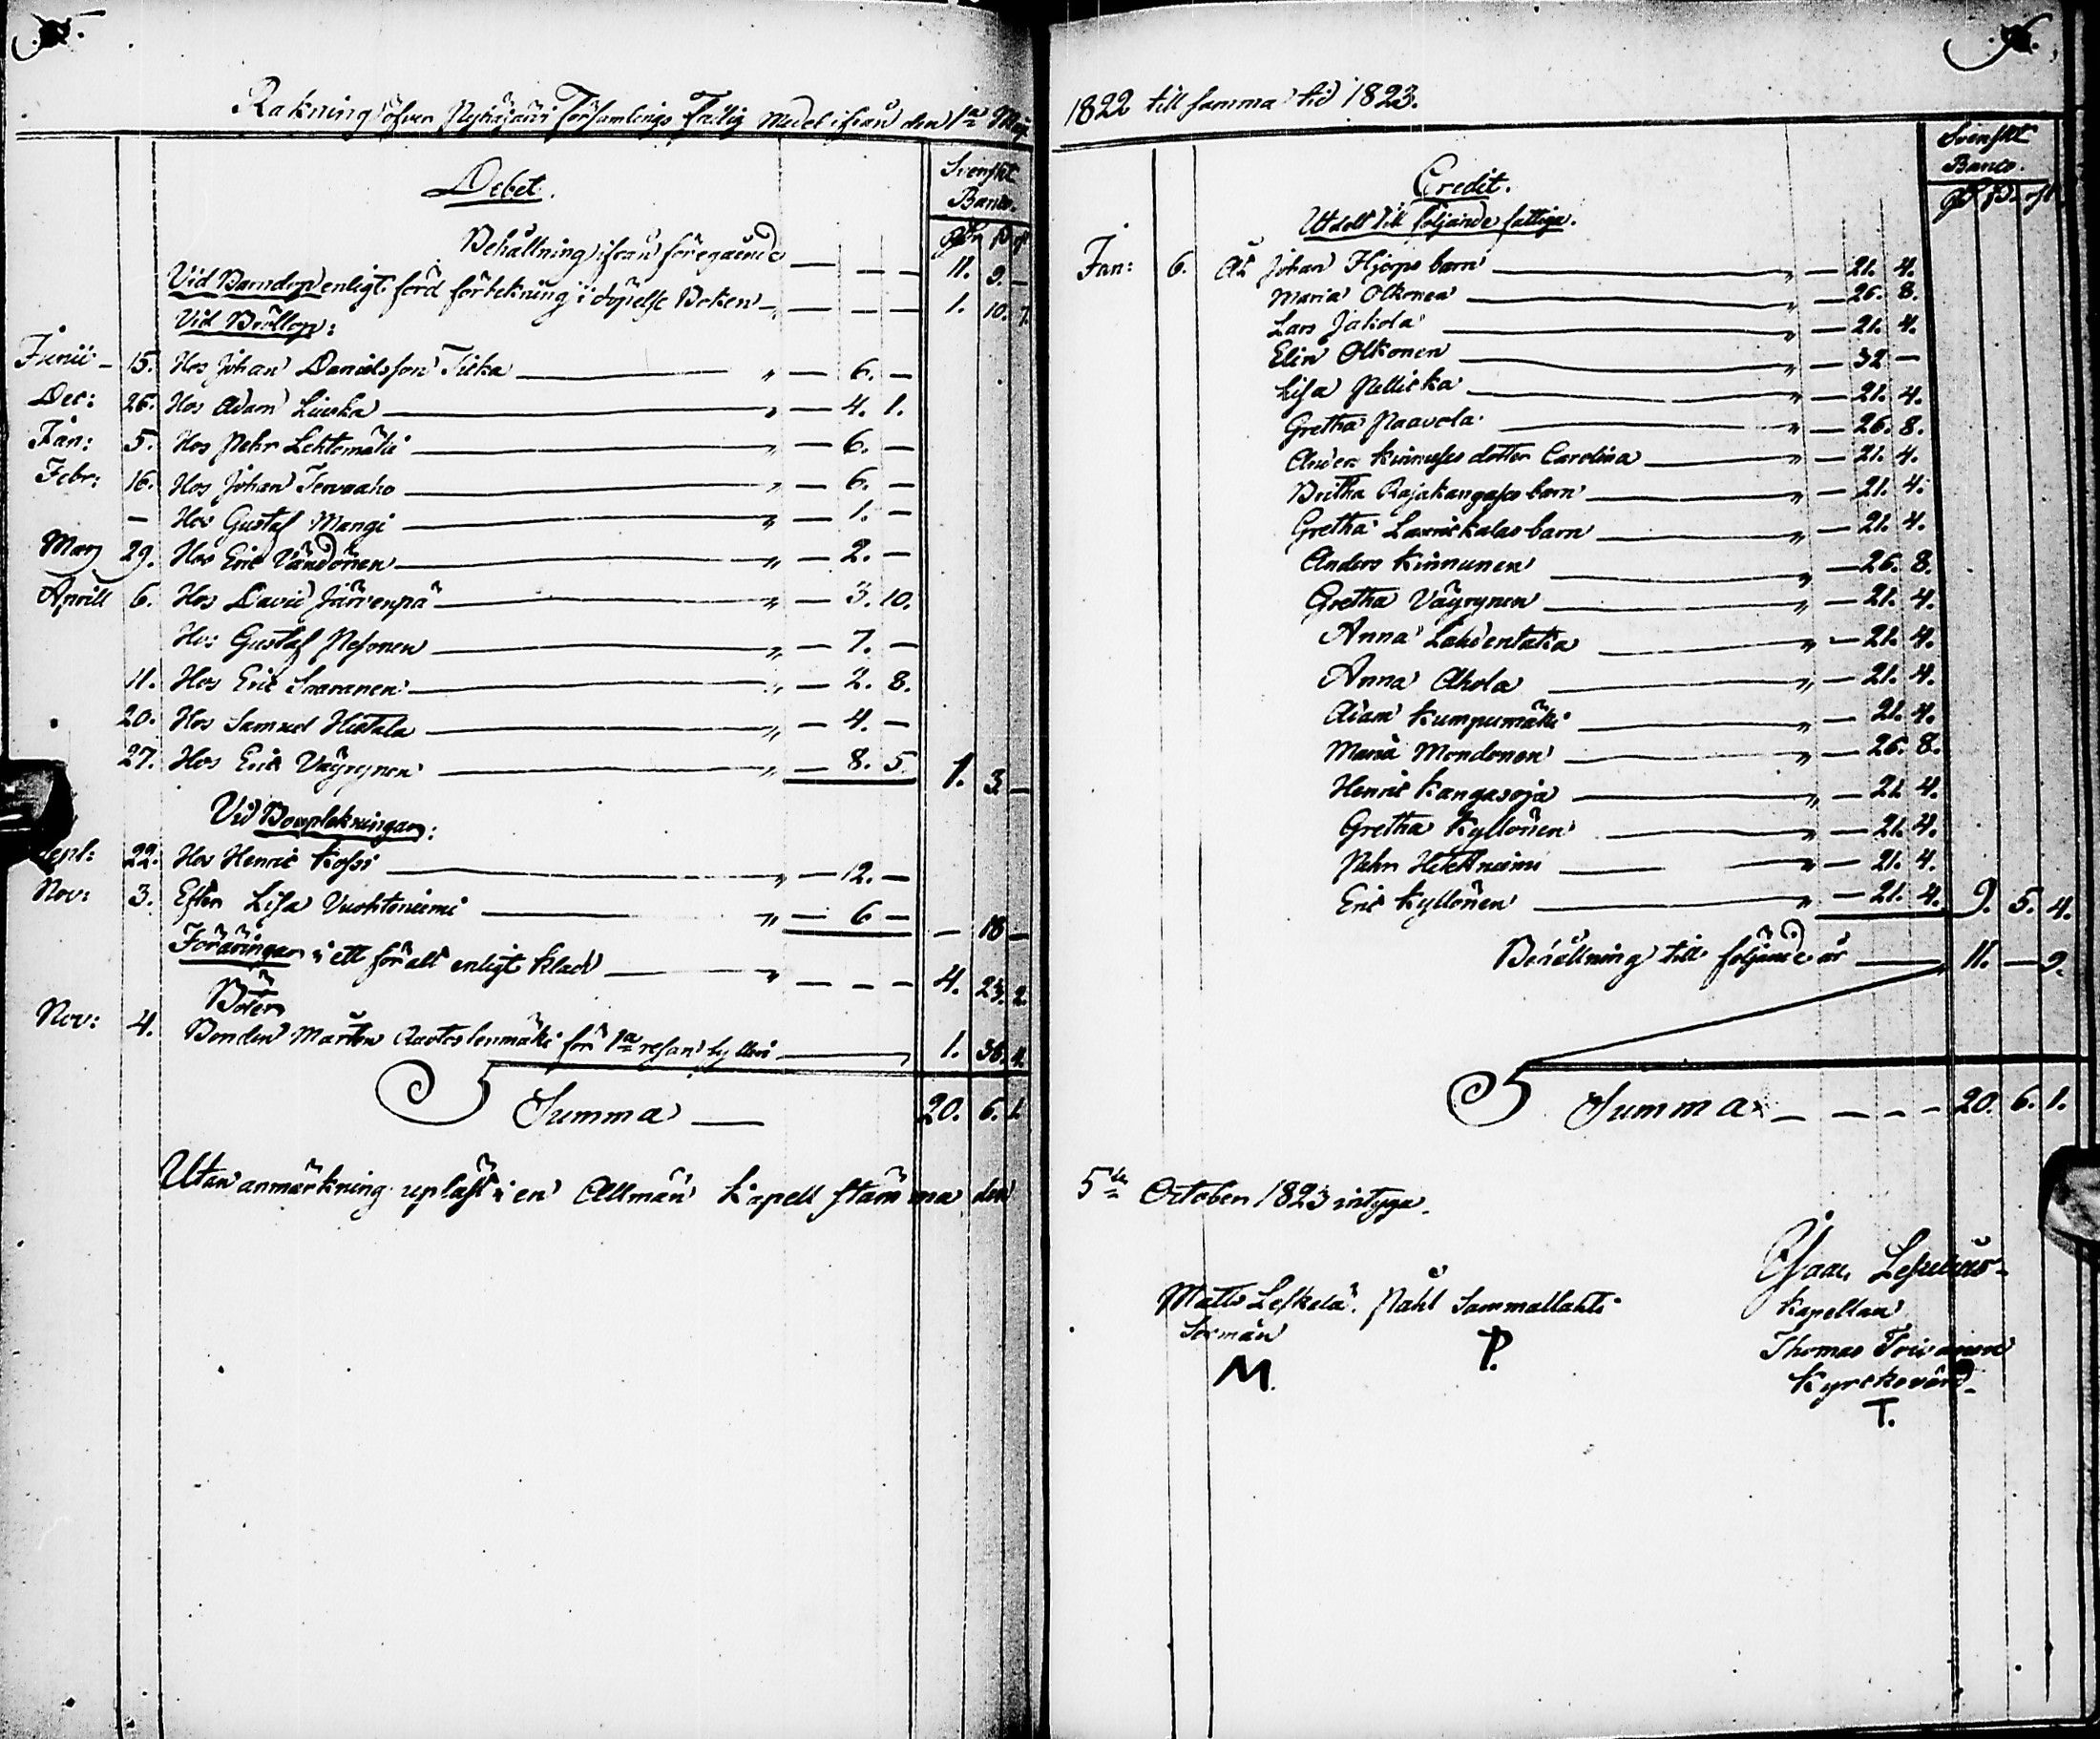 Räkning öfver Pyhäjärvi Församlings Fattig Medel ifrån den 1a Maji
Debet.
Svenskt
Banco.
Behållning ifrån föregående — — — 11. 9. —
Vid Barndop enligt förd förtekning i döpelse Boken — — — 1. 10. 7.
Vid Bröllop:
Junii — 15. Hos Johan Danielsson Tilka — „ — 6. —
Dec: 26. Hos Adam Liuska — „ — 4. 1.
Jan: 5. Hos Pehr Lehtomäki — „ — 6. —
Febr: 16. Hos Johan Tervaaho — „ — 6. —
— Hos Gustaf Mangi — „ — 1. —
Marz 29. Hos Eric Vändönen — „ — 2. —
Aprill 6. Hos David Järvenpä — „ — 3. 10.
Hos Gustaf Pesonen — „ — 7. —
11. Hos Eric Saaranen — „ — 2. 8.
20. Hos Samuel Hietala — „ — 4. —
27. Hos Eric Väyrynen — „ — 8. 5. 1. 3. —
Vid Bouptekningar:
Sept: 22. Hos Henric Kossi — „ — 12. —
Nov: 3. Efter Lisa Vuohtoniemi — „ — 6 — — 18 —
Föräringar i ett för alt enligt Klad — „ — — — 4. 23. 2.
Böter
Nov: 4. Bonden Mårten för 1a resan fylleri — 1. 36. 4.
Summa — 20. 6. 1.
Utan anmärkning upläst i en Allmän Kapell stämma den
1822 till samma tid 1823.
Credit.
Svenskt
Banco.
Utdelt till följande fattiga.
Jan: 6. Åt Johan Hjerps barn — „ — 21. 4.
Maria Olkonen — „ — 26. 8.
Lars Jakola — „ — 21. 4.
Elin Olkonen — „ — 32 —
Lisa Pellicka — „ — 21. 4.
Gretha Paavola — „ — 26. 8.
Anders Kinnuses dotter Carolina — „ — 21. 4.
Britha Rajakangases barn — „ — 21. 4.
Gretha Laurickalas barn — „ — 21. 4.
Anders Kinnunen — „ — 26. 8.
Gretha Väyrynen — „ — 21. 4.
Anna Lahdentaka — „ — 21. 4.
Anna Ahola — „ — 21. 4.
Adam Kumpumäki — „ — 21. 4.
Maria Mondonen — „ — 26. 8.
Henric Kangasoja — „ — 21. 4.
Gretha Kyllönen — „ — 21. 4.
Pehr Hietaniemi — „ — 21. 4.
Eric Kyllönen — „ — 21. 4. 9. 5. 4.
Behållning till följande år — 11. — 9.
Summa — — — — 20. 6. 1.
5te October 1823 intyga.
Isaac
Matts Leskelä. Påhl Sammallahti
Kapellan
Sexman
Thomas Toivanen
M. P.
Kyrckovärd
T.